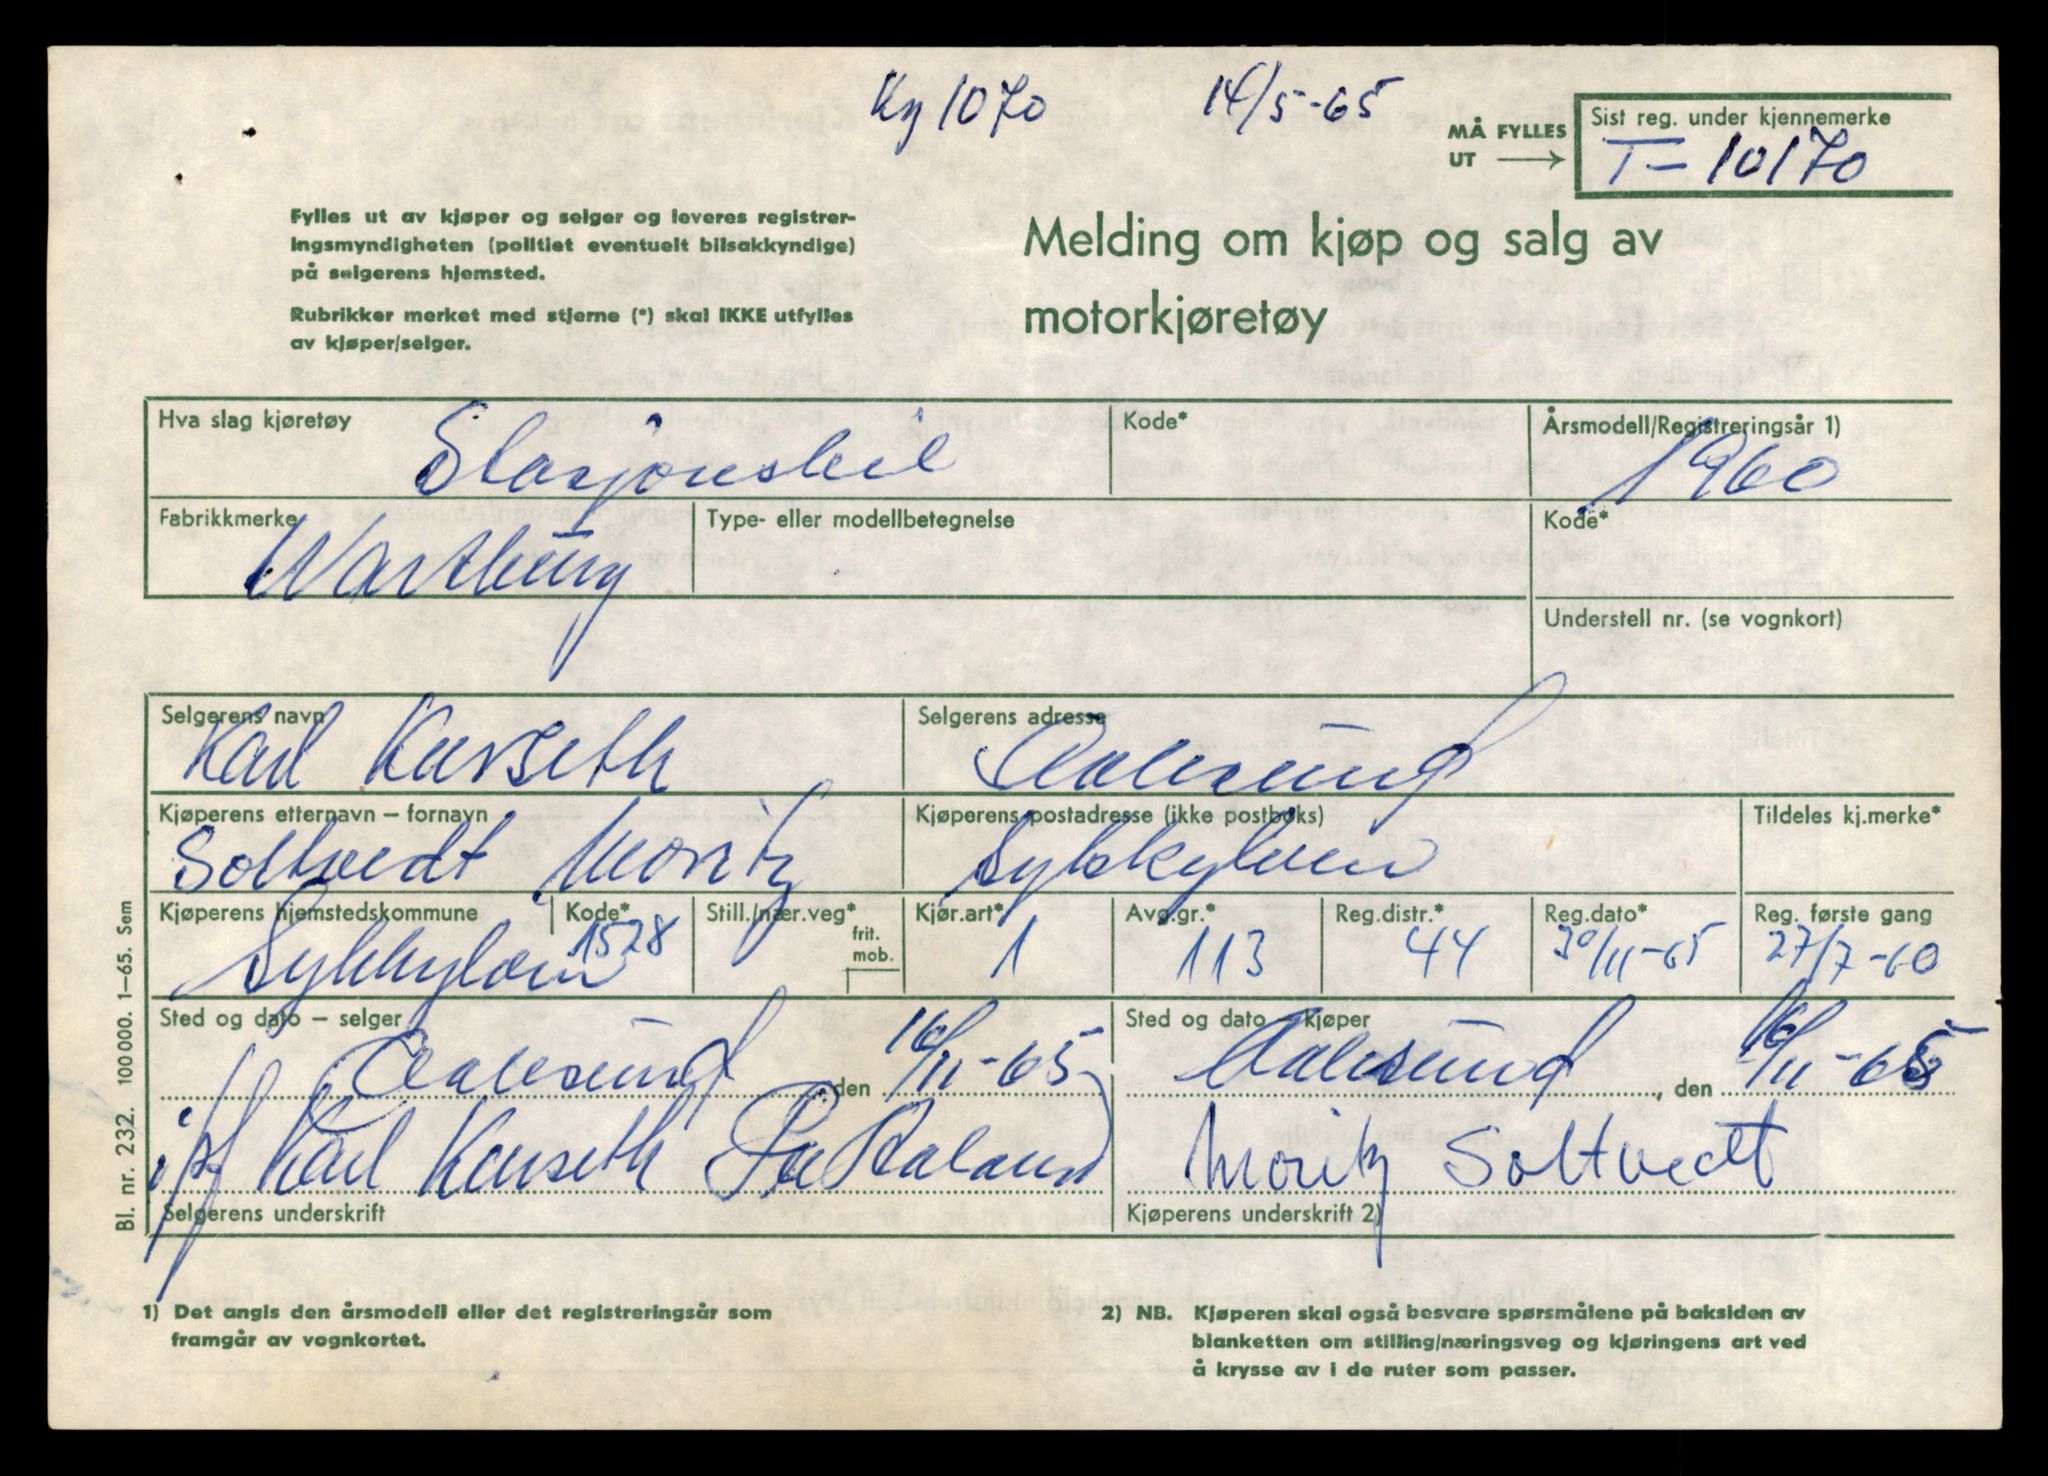 Ky 1070 14/5-65
MÅ FYLLES
UT → Sist reg. under kjennemerke
T-10170
Fylles ut av kjøper og selger og leveres registrer-
ingsmyndigheten (politiet eventuelt bilsakkyndige)
på selgerens hjemsted.
Rubrikker merket med stjerne (*) skal IKKE utfylles
av kjøper/selger.
Melding om kjøp og salg av
motorkjøretøy
Hva slag kjøretøy Kode* Årsmodell/Registreringsår 1)
Stasjonsbil 1960
Fabrikkmerke Type- eller modellbetegnelse Kode*
Wartburg
Understell nr. (se vognkort)
Selgerens navn Selgerens adresse
Karl Karseth Aalesund
Kjøperens etternavn – fornavn Kjøperens postadresse (ikke postboks) Tildeles kj.merke*
Soltvedt Moritz Sykkylven
Kjøperens hjemstedskommune Kode* Still./nær.veg* frit. mob. Kjør.art* Avg.gr.* Reg.distr.* Reg.dato* Reg. første gang
Sykkylven 1528 1 113 44 30/11-65 27/7-60
Sted og dato – selger Sted og dato – kjøper
Aalesund, den 16/11-65 Aalesund, den 16/11-65
i/f Karl Karseth Moritz Soltvedt
Selgerens underskrift Kjøperens underskrift 2)
Bl. nr. 232. 100 000. 1–65. Sem
1) Det angis den årsmodell eller det registreringsår som
framgår av vognkortet.
2) NB. Kjøperen skal også besvare spørsmålene på baksiden av
blanketten om stilling/næringsveg og kjøringens art ved
å krysse av i de ruter som passer.